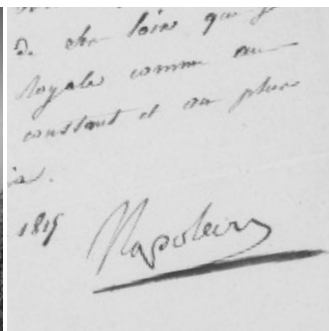 de loin que je
Royale comme au
constant et au plus
1815
Napoleon